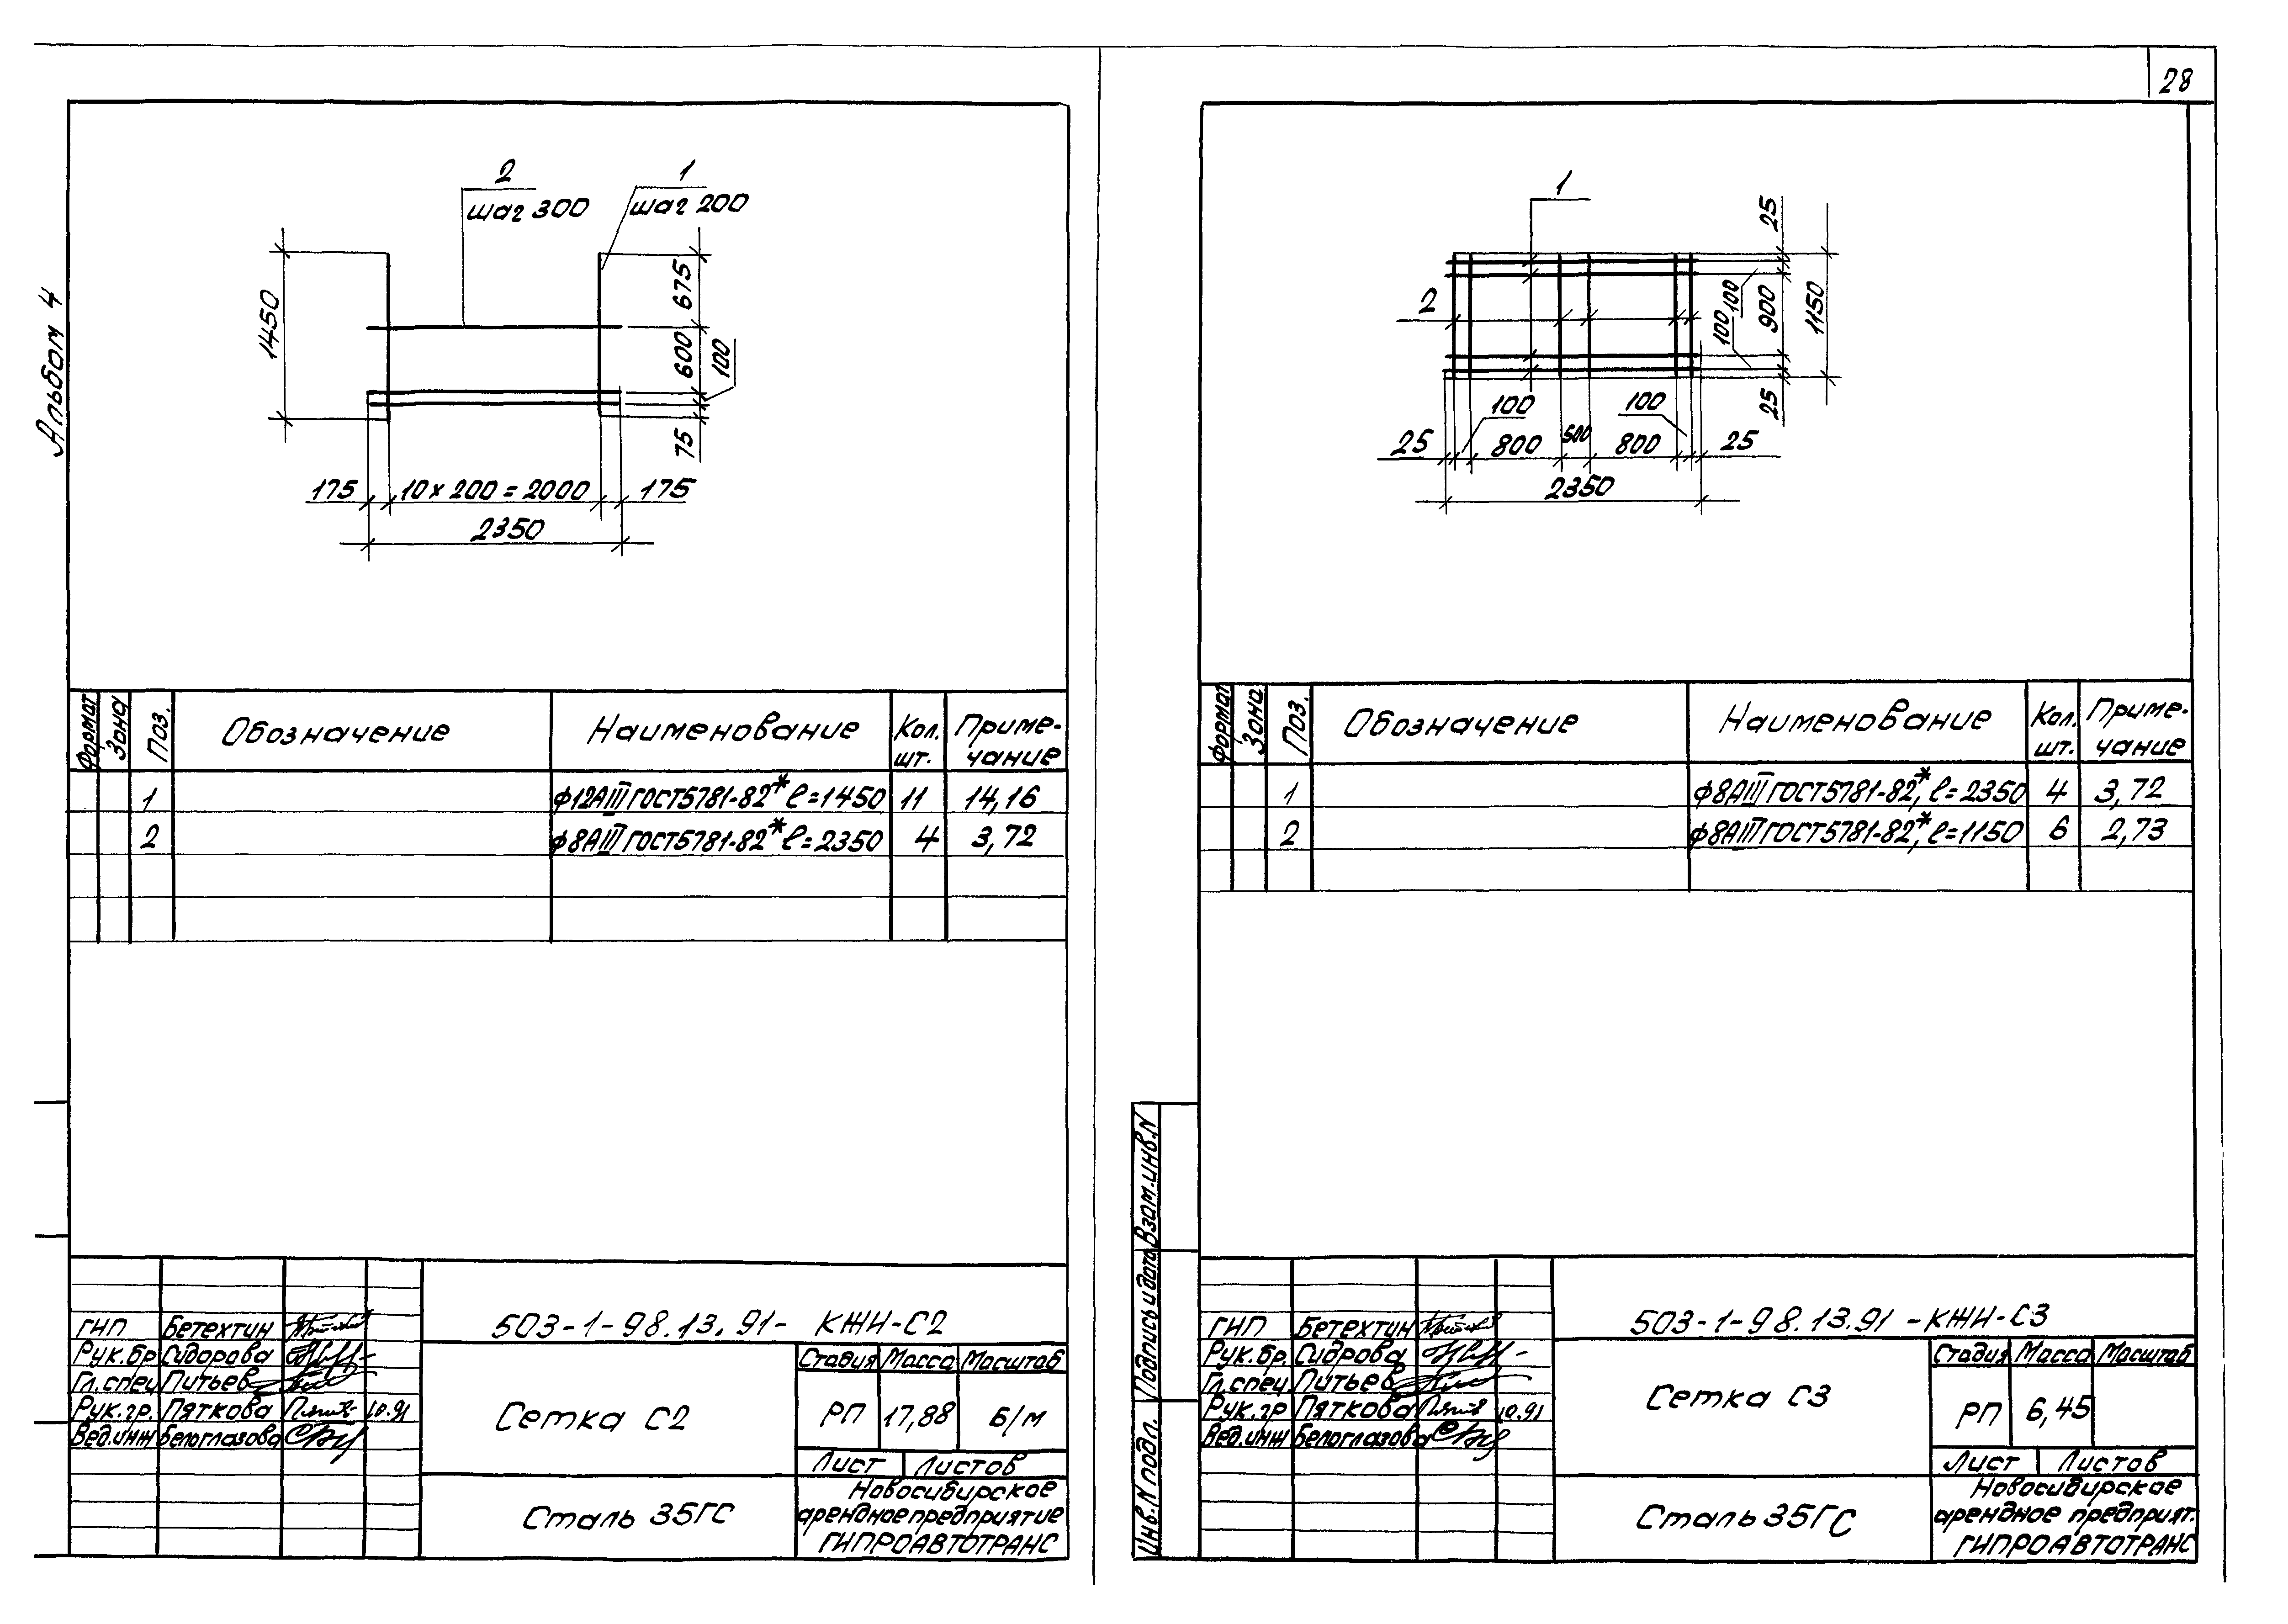 28
Альбом 4
2
шаг 300
1
шаг 200
1450
675
600
100
75
175
10 х 200 = 2000
175
2350
Формат
Зона
Поз.
Обозначение
Наименование
Кол. шт.
Приме-
чание
1
ф12АIII ГОСТ5781-82* ℓ=1450
11
14,16
2
ф8АIII ГОСТ5781-82* ℓ=2350
4
3,72
503-1-98.13.91- КЖИ-С2
ГИП Бетехтин
Рук.бр Сидорова
Гл.спец Питьев
Рук.гр. Пяткова 10.91
Вед.инж Белоглазова
Сетка С2
Стадия Масса Масштаб
РП 17,88 Б/М
Лист Листов
Сталь 35ГС
Новосибирское
арендное предприятие
ГИПРОАВТОТРАНС
1
2
25
100
900
100
1150
25
100
100
25
800
500
800
25
2350
Формат
Зона
Поз.
Обозначение
Наименование
Кол. шт.
Приме-
чание
1
ф8АIII ГОСТ5781-82*, ℓ=2350
4
3,72
2
ф8АIII ГОСТ5781-82*, ℓ=1150
6
2,73
Взам.инв.N
Подпись и дата
Инв.N подл.
503-1-98.13.91 -КЖИ-С3
ГИП Бетехтин
Рук.бр. Сидрова
Гл.спец. Питьев
Рук.гр Пяткова 10.91
Вед.инж Белоглазова
Сетка С3
Стадия Масса Масштаб
РП 6,45
Лист Листов
Сталь 35ГС
Новосибирское
арендное предприят.
ГИПРОАВТОТРАНС